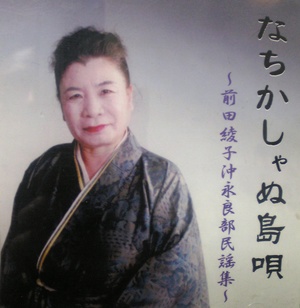 なちかしゃぬ島唄
～前田綾子沖永良部民謡集～